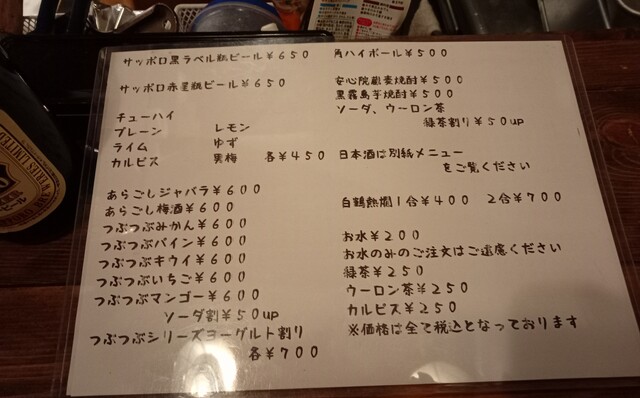 サッポロ黒ラベル瓶ビール¥650
サッポロ赤星瓶ビール¥650
チューハイ
プレーン　レモン
ライム　ゆず
カルピス　黒梅　各¥450
あらごしジャバラ¥600
あらごし梅酒¥600
つぶつぶみかん¥600
つぶつぶパイン¥600
つぶつぶキウイ¥600
つぶつぶいちご¥600
つぶつぶマンゴー¥600
ソーダ割¥50up
つぶつぶシリーズヨーグルト割り
各¥700
角ハイボール¥500
安心院蔵麦焼酎¥500
黒霧島芋焼酎¥500
ソーダ、ウーロン茶
緑茶割り¥50up
日本酒は別紙メニュー
をご覧ください
白鶴熱燗1合¥400　2合¥700
お水¥200
お水のみのご注文はご遠慮ください
緑茶¥250
ウーロン茶¥250
カルピス¥250
※価格は全て税込となっております